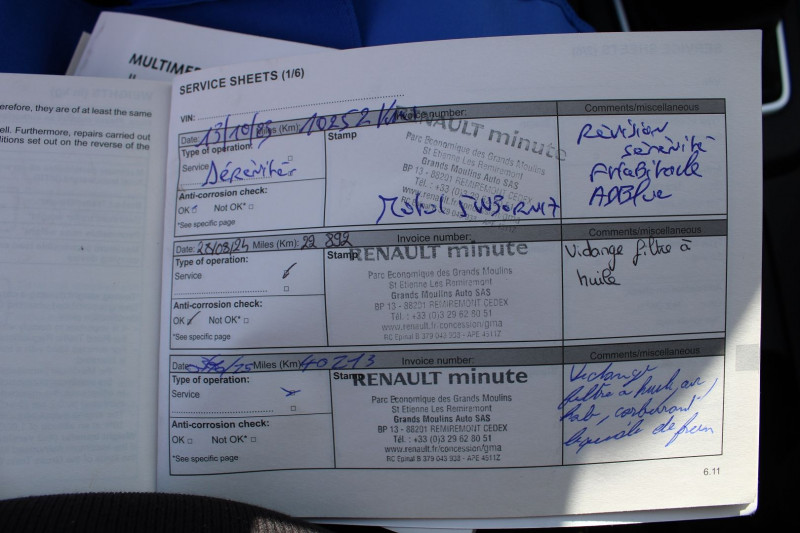 MULTIMED
SERVICE SHEETS (1/6)
erefore, they are of at least the same
ell. Furthermore, repairs carried out
ditions set out on the reverse of the
VIN:
Date: 13/10/23 Miles (Km): 10252 Km Invoice number:
Comments/miscellaneous
Type of operation:
Service
Sérénité
Anti-corrosion check:
OK Not OK*
*See specific page
Stamp
RENAULT minute
Parc Economique des Grands Moulins
St Etienne Les Remiremont
Grands Moulins Auto SAS
BP 13 - 88201 REMIREMONT CEDEX
Révision
sérénité
AdBlue
Date: 28/08/24 Miles (Km): 22 892 Invoice number:
Comments/miscellaneous
Type of operation:
Service
Anti-corrosion check:
OK Not OK*
*See specific page
Stamp
RENAULT minute
Parc Economique des Grands Moulins
St Etienne Les Remiremont
Grands Moulins Auto SAS
BP 13 - 88201 REMIREMONT CEDEX
Tél. : +33 (0)3 29 62 80 51
www.renault.fr/concession/gma
RC Epinal B 379 043 938 - APE 4511Z
Vidange filtre à
huile
Date: Miles (Km): 40213 Invoice number:
Comments/miscellaneous
Type of operation:
Service
Anti-corrosion check:
OK Not OK*
*See specific page
Stamp
RENAULT minute
Parc Economique des Grands Moulins
St Etienne Les Remiremont
Grands Moulins Auto SAS
BP 13 - 88201 REMIREMONT CEDEX
Tél. : +33 (0)3 29 62 80 51
www.renault.fr/concession/gma
RC Epinal B 379 043 938 - APE 4511Z
Vidange
filtre à huile, air,
hab, carburant
liquide de frein
6.11